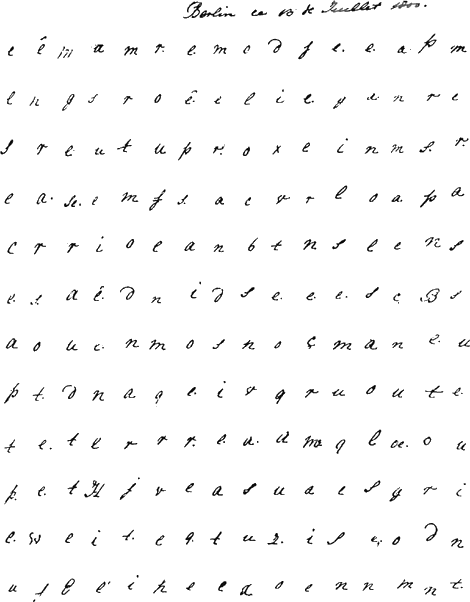 Berlin ce 13 de Juillet 1800.
e ê m a m r. e m c d f e. e. e a p m
l n q s r o ê. e l i e. y a n r e
s r e u t u p r. o x e i n m s. r.
e a. se. e m f s. a c v r l o a. p a
c r r i o e a n b t n s l e e n s
e. s. a é. d n i d s e. e e. s c. B s
a o u c. n m o s n o ç m a n e. u
p t. d n a q e i v q r u o u t e.
t e. t l r r r. e a. d m q l œ. o u
p. e. t H f v e a s u a e s y r i
e. w e i t. e q. t u z. i s e, o d n
u s l e i n e e a o e n n m n t.